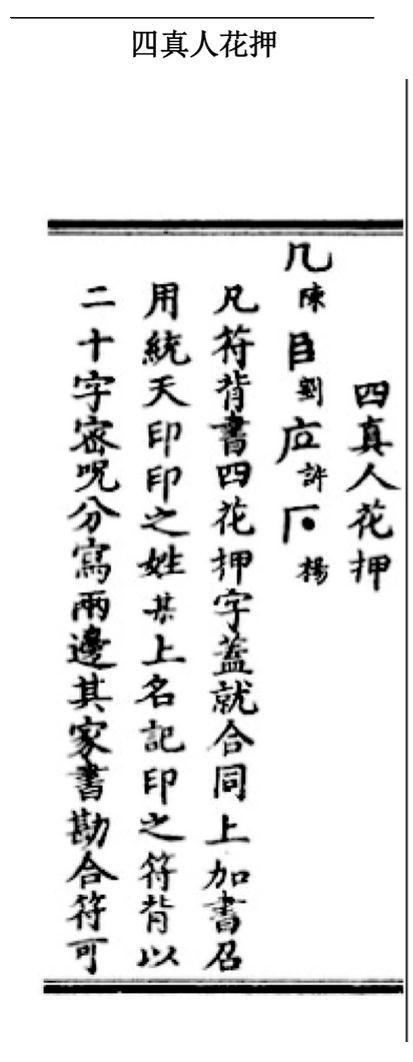 四真人花押
四真人花押
陳 劉 許 楊
凡符背書四花押字蓋就合同上加書召
用統天印印之姓某上名記印之符背以
二十字密呪分寫兩邊其家書勘合符可